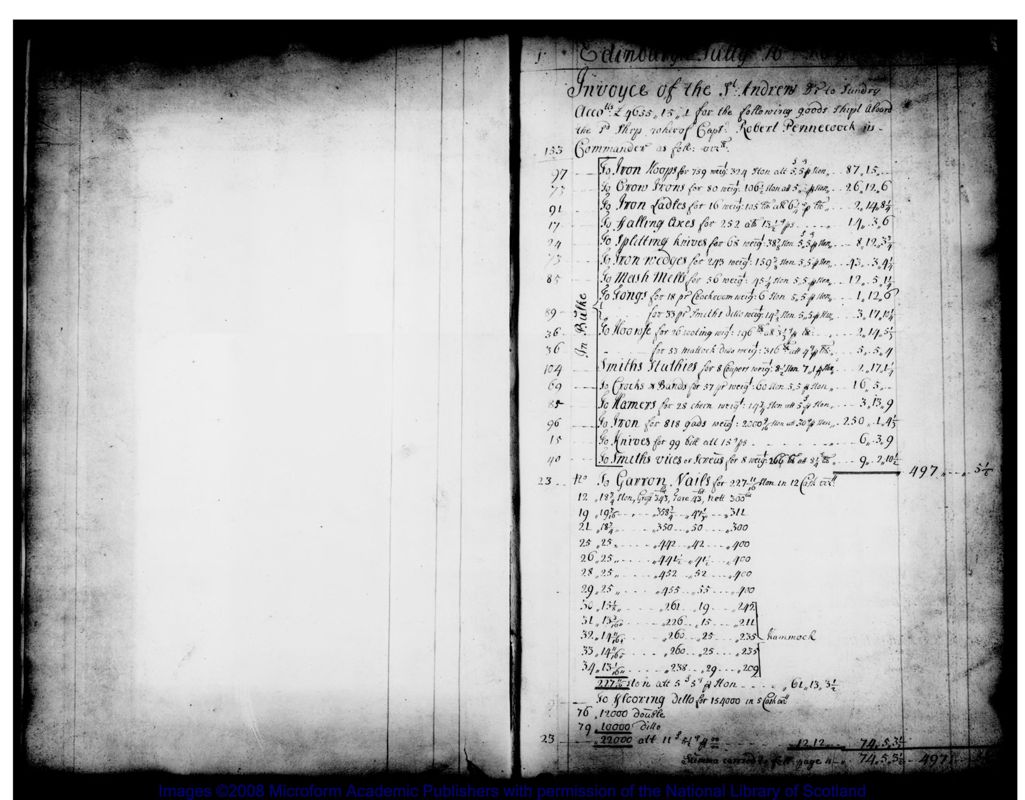 1 Edinburgh July 16
Invoyce of the St. Andrew Dr to Sundry
Accotts £ 4655,15,1 for the following goods Shipt Aboard
the sd Ship wherof Capt: Robert Pennecook is
133 Commander as foll: vizt.
In Bulke
97 To Iron Hoops for 739 weigt 324 ston att 5s,5d p ston 87,15
77 To Crow Irons for 80 weigt: 106½ ston att 5 p ston 26,12,6
91 To Iron Ladles for 16 weigt: 105 lb att 6¼d p lb 2,14,8¼
17 To Falling Axes for 252 att 13½d ps 14,3,6
24 To Splitting knives for 68 weigt: ston 5,5 p ston 8,12,3¼
73 To Iron wedges for 243 weigt: 159 ston 5,5 p ston 43,3,4¼
85 To Mash Mells for 56 weigt: 45¼ ston 5,5 p ston 12,5,1¼
To Tongs for 18 pr weigt: 6 ston 5,5 p ston 1,12,6
89 for 33 pr Smiths ditto weigt: ston 5,5 p ston 3,17,10½
36 To for 26 weigt: 196 lb att p lb 2,14,5½
36 for 53 mattock ditto weigt: 316 lb att 4d p lb 5,5,4
104 Smiths Stuthies for 8 Coupers weigt: 8½ ston 7, p ston 2,17,1½
69 To Crocks & Bands for 57 pr weigt: 60 ston 5,5 p ston 16,5
85 To Hamers for 28 weigt: ston att 5 p ston 3,13,9
96 To Iron for 818 gads weigt: ston att p ston 250,1,4½
15 To Knives for 99 att 15d ps 6,3,9
40 To Smiths vices or Screws for 8 weigt: 266 lb att lb 9,2,10½
497 5½
23 No To Garron Nails for 227 11/16 ston in 12 Cask vizt
12 ,18¾ ston, Gross 343, Tare 43, nett 300
19 ,358½ ,47½ ,311
21 ,18¾ ,350 ,50 ,300
25 ,25 ,442 ,42 ,400
26 ,25 ,441½ ,41½ ,400
28 ,25 ,452 ,52 ,400
29 ,25 ,455 ,55 ,400
30 ,261 ,19 ,242
31 ,226 ,15 ,211
32 ,260 ,25 ,235 hammock
33 ,260 ,25 ,235
34 ,238 ,29 ,209
227 ston att 5s 5d p ston ,61,13,3½
To Flooring ditto for 154000 in 5 Cask vizt
76 ,12000 double
79 ,10000 ditto
23 ,22000 att 11s 12,12 74,5,3½
Summa carried to foll: page 74,5,5½ 497
Images ©2008 Microform Academic Publishers with permission of the National Library of Scotland